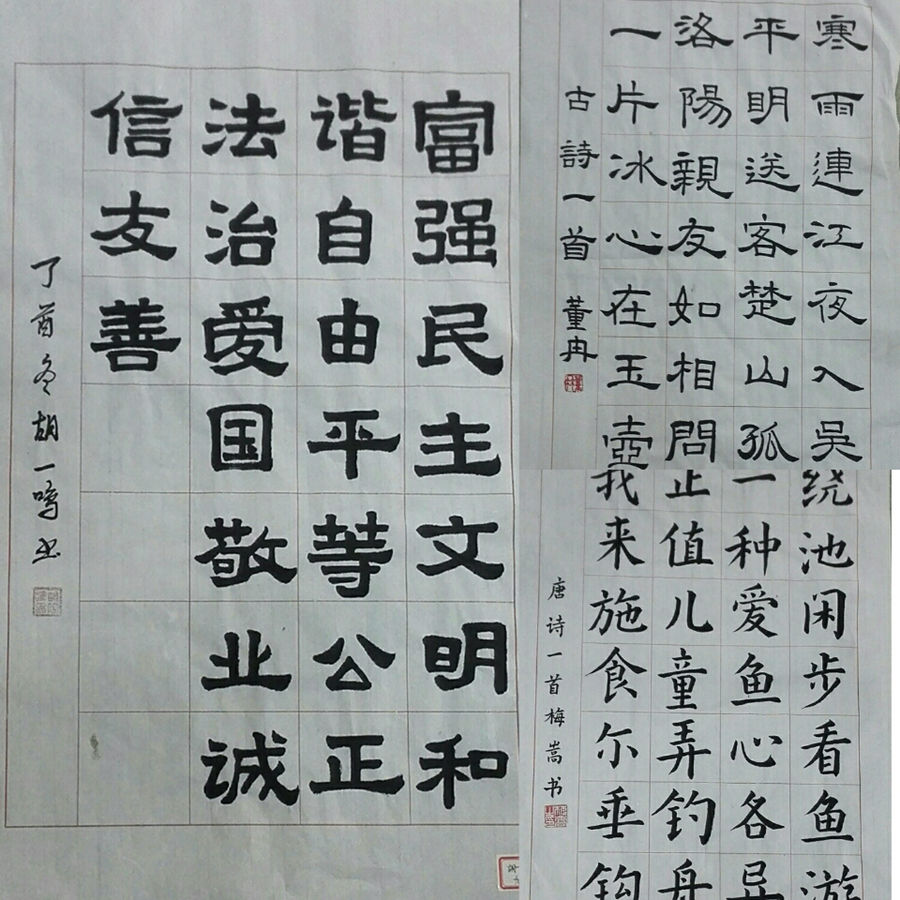 富强民主文明和
谐自由平等公正
法治爱国敬业诚
信友善
丁酉冬胡一鸣书
寒雨連江夜入吳
平明送客楚山孤
洛陽親友如相問
一片冰心在玉壺
古詩一首 董冉
绕池闲步看鱼游
正值儿童弄钓舟
一种爱鱼心各异
我来施食尔垂钩
唐诗一首梅嵩书